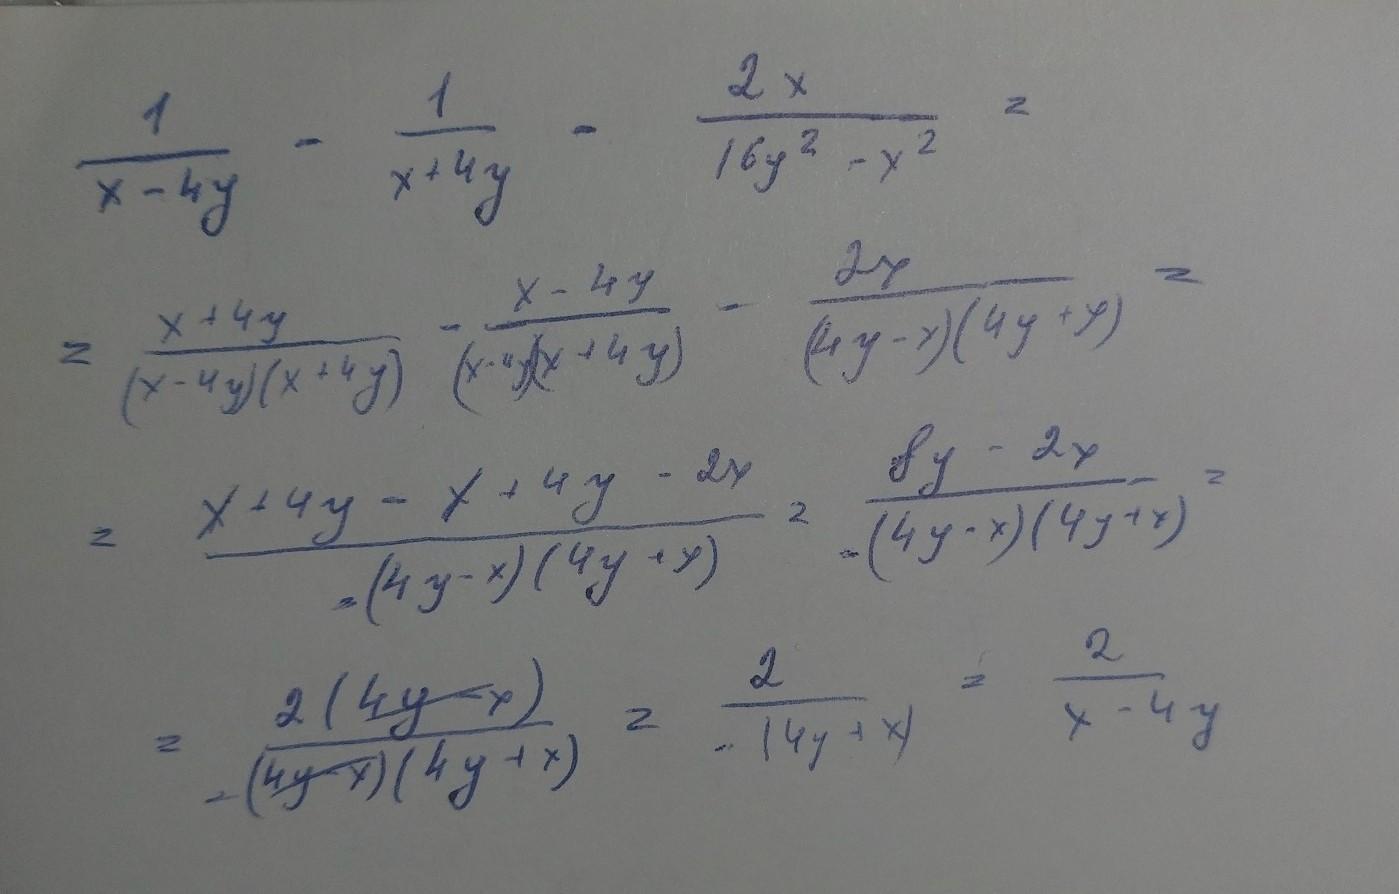 1/(x-4y) - 1/(x+4y) - 2x/(16y² - x²) =
= (x+4y)/((x-4y)(x+4y)) - (x-4y)/((x-4y)(x+4y)) - 2x/((4y-x)(4y+x)) =
= (x+4y-x+4y-2x)/(-(4y-x)(4y+x)) = (8y-2x)/(-(4y-x)(4y+x)) =
= 2(4y-x)/(-(4y-x)(4y+x)) = 2/(-(4y+x)) = 2/(x-4y)